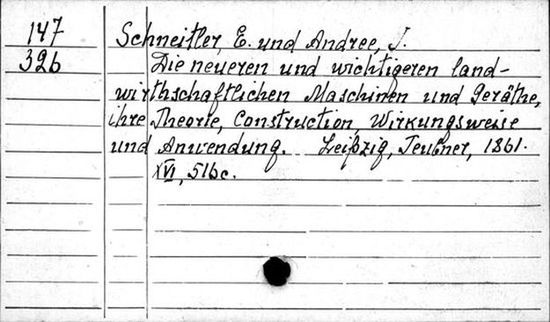 147
326
Schneitler, E. und Andree, J.
Die neueren und wichtigeren land-
wirthschaftlichen Maschinen und Geräthe,
ihre Theorie, Construction, Wirkungsweise
und Anwendung. Leipzig, Teubner, 1861.
XVI, 516 c.